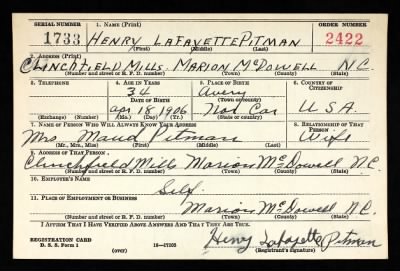 SERIAL NUMBER 1. NAME (Print) ORDER NUMBER
1733 HENRY LAFAYETTE PITMAN 2422
(First) (Middle) (Last)
2. ADDRESS (Print)
CLINCHFIELD MILLS. MARION McDOWELL N.C.
(Number and street or R. F. D. number) (Town) (County) (State)
3. TELEPHONE 4. AGE IN YEARS 5. PLACE OF BIRTH 6. COUNTRY OF CITIZENSHIP
34 Avery
DATE OF BIRTH (Town or county)
Apr 18 1906 Nod Car U.S.A.
(Exchange) (No.) (Mo.) (Day) (Yr.) (State or country)
7. NAME OF PERSON WHO WILL ALWAYS KNOW YOUR ADDRESS 8. RELATIONSHIP OF THAT PERSON
Mrs. Maud Pitman Wife
(Mr., Mrs., Miss) (First) (Middle) (Last)
9. ADDRESS OF THAT PERSON
Clinchfield Mills Marion McDowell N.C.
(Number and street or R. F. D. number) (Town) (County) (State)
10. EMPLOYER'S NAME
Self
11. PLACE OF EMPLOYMENT OR BUSINESS
Marion McDowell N.C.
(Number and street or R. F. D. number) (Town) (County) (State)
I AFFIRM THAT I HAVE VERIFIED ABOVE ANSWERS AND THAT THEY ARE TRUE.
REGISTRATION CARD
D. S. S. Form 1 16—17105 Henry Lafayette Pitman
(over) (Registrant's signature)